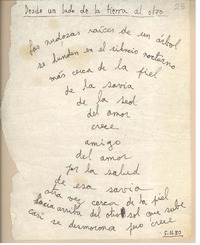 Desde un lado de la tierra al otro
28
Las nudosas raíces de un árbol
se hunden en el silencio nocturno
más cerca de la piel
de la savia
de la sed
del amor
crece
amigo
del amor
por la salud
de esa savia
otra vez cerca de la piel
hacia arriba del otro sol que sube
casi se desmorona pero crece